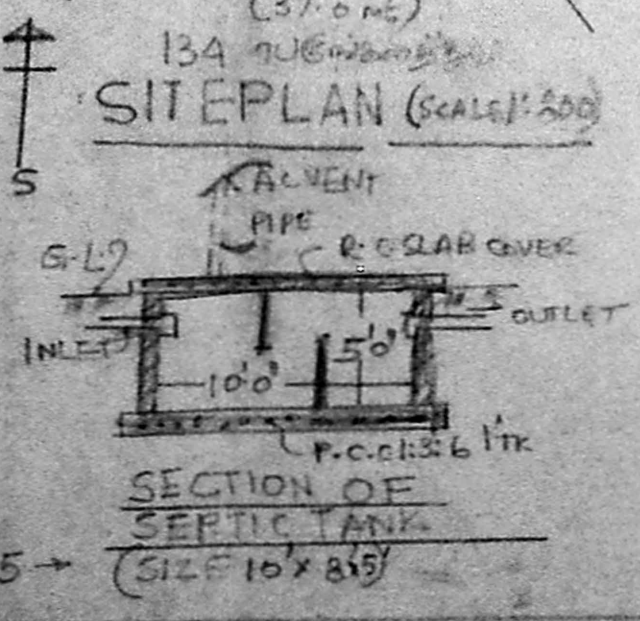 134
SITE PLAN (SCALE 1:200)
S
A.C VENT
PIPE
G.L.
R.C SLAB COVER
INLET
OUTLET
10'0"
5'0"
P.C.C 1:3:6 1' TK
SECTION OF
SEPTIC TANK
(SIZE 10'x 8'x5')
5 →